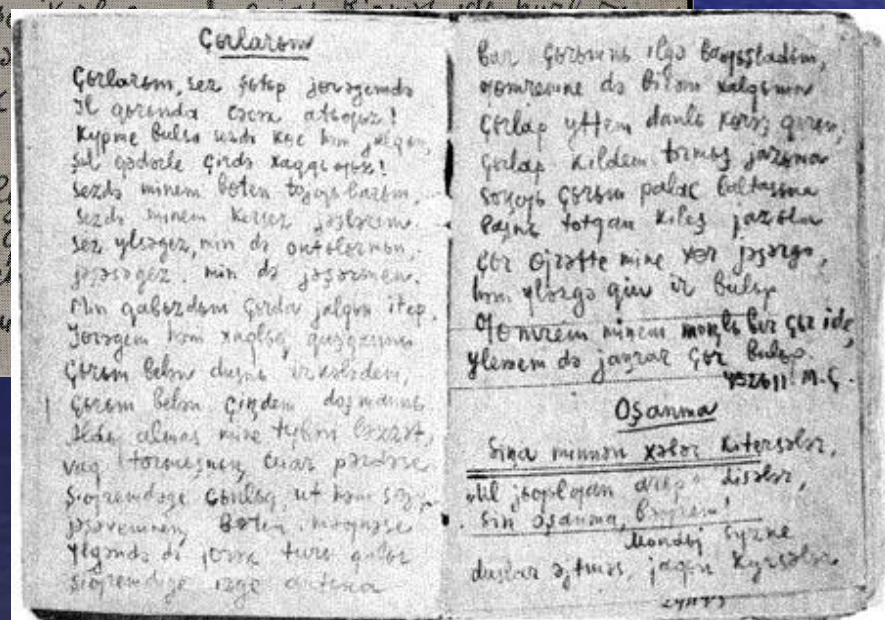 Çьrlarьm
Çьrlarьm, sez şьtьp jɵrəgemdə
Il qьrьnda cəcək atьƣьz!
Kypme bulsa sezdə kɵc həm jalqьn,
Şul qədərle çirdə xaqqьƣьz!
Sezdə minem bɵten tojƣьlarьm,
Sezdə minem kersez jəşlərem.
Sez ylsəgez, min də onьtьlьrmьn,
jəşəsəgez, min də jəşərmen.
Min qabьzdьm çьrda jalqьn itep
Jɵrəgem həm xaqlьq quşqannь
Çьrьm belən dusnь irkələdem,
Çьrьm belən çiŋdem doşmannь.
Alda almas mine tybən ləzzət,
vaq tormьşnьŋ cuar pərdəse
Şiƣremdəge cьnlьq, ut həm sɵjy
jəşəvemneŋ bɵten məƣnəse
Ylgəndə də jɵrək turь qalьr
Şiƣremdəge izge antьna
Bar çьrьmnь ilgə baƣьşladьm,
ƣomremne də birəm xalqьma
Çьrlap yttem danlь kɵrəş qьrьn,
Çьrlap kildem tormьş jazьna
Soŋƣь çьrьm palac baltasьna
Başnь totqan kileş jazьla
Çьr ɵjrətte mine xɵr jəşərgə,
həm ylərgə qьju ir bulьp
ƣomrem minem moŋlь ber çьr ide,
ylemem də jaŋrar çьr bulьp.
M.Ç.
Oşanma
Siŋa minnən xəbər kitersələr,
"Ul jьƣьlƣan arьp" disələr,
Sin oşanma, bəƣrem!
Mondьj syzne
duslar əjtməs, jaqьn kyrsələr